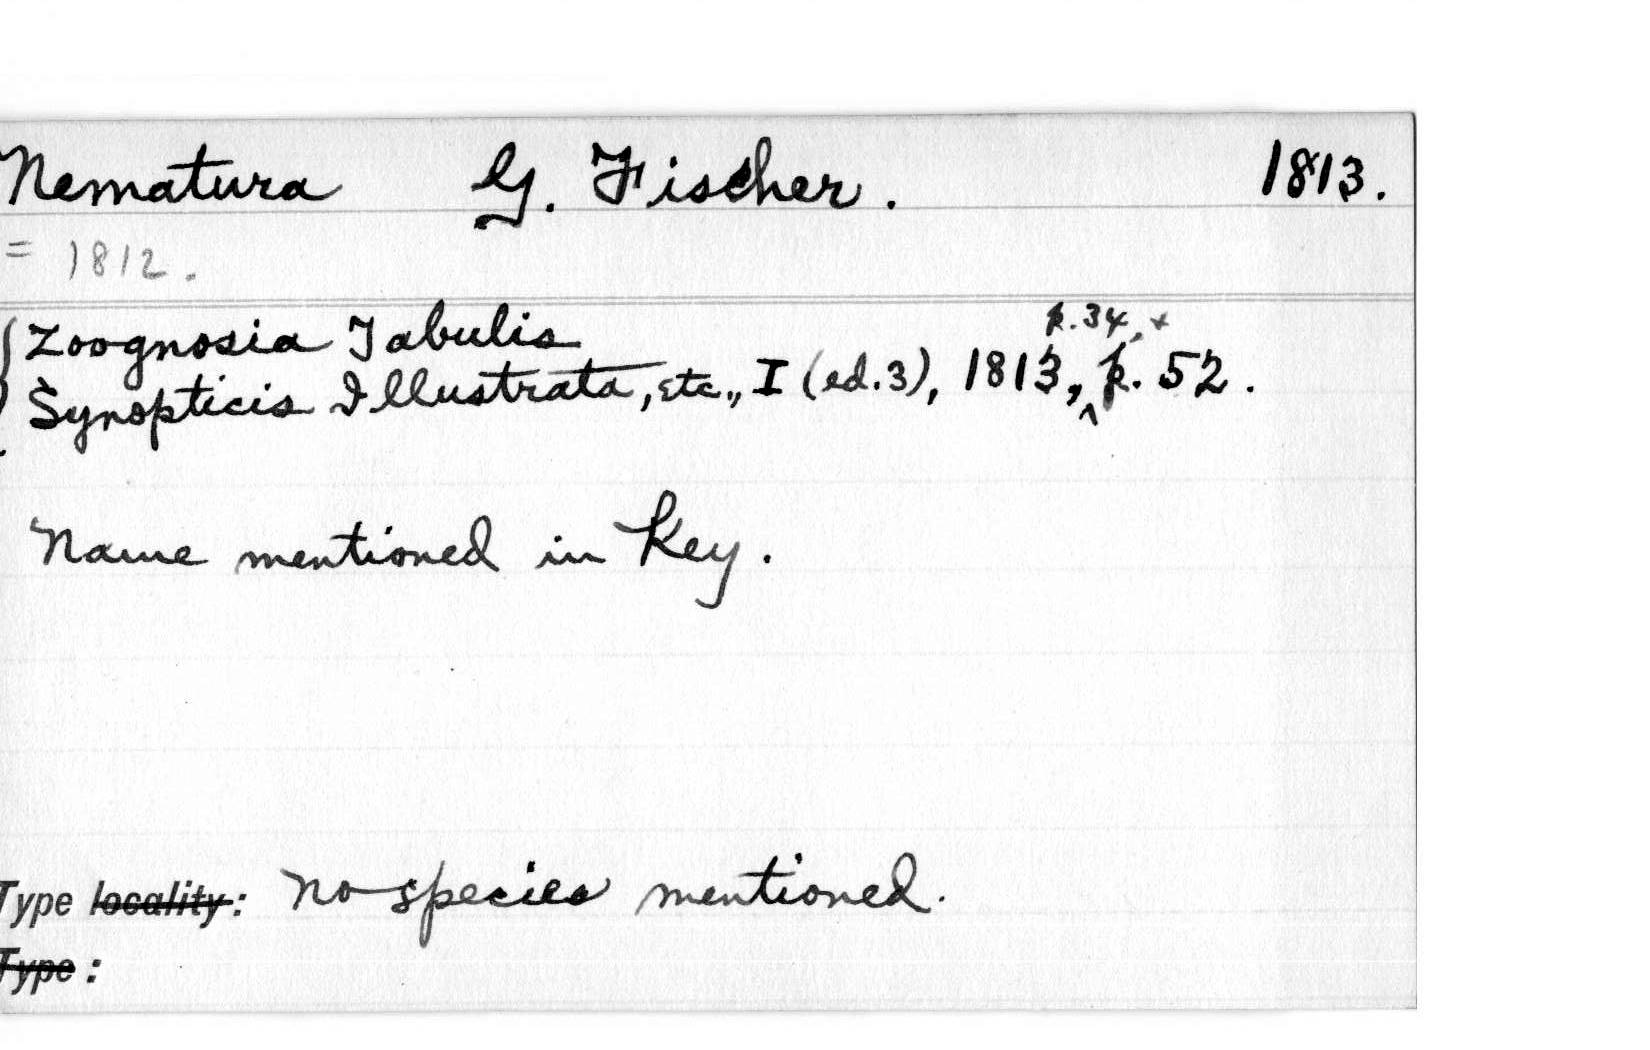 Nematura G. Fischer. 1813.
= 1812.
Zoognosia Tabulis
p. 34, +
Synopticis Illustrata, etc., I (ed. 3), 1813, p. 52.
Name mentioned in Key.
Type locality: no species mentioned.
Type: